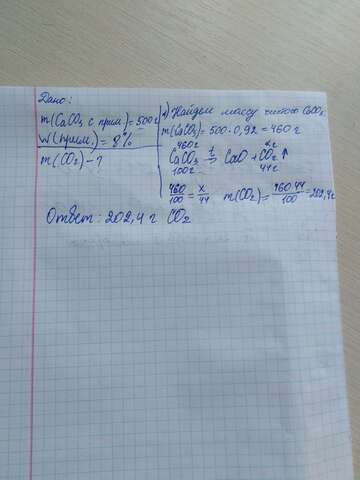 Дано:
m(CaCO3 с прим.)=500г
W(прим.)=8%
m(CO2)-?
1) Найдем массу чистого CaCO3
m(CaCO3)=500·0,92=460г
460г xг
CaCO3 t→ CaO+CO2↑
100г 44г
460/100=x/44 m(CO2)=460·44/100=202,4г
Ответ: 202,4 г CO2